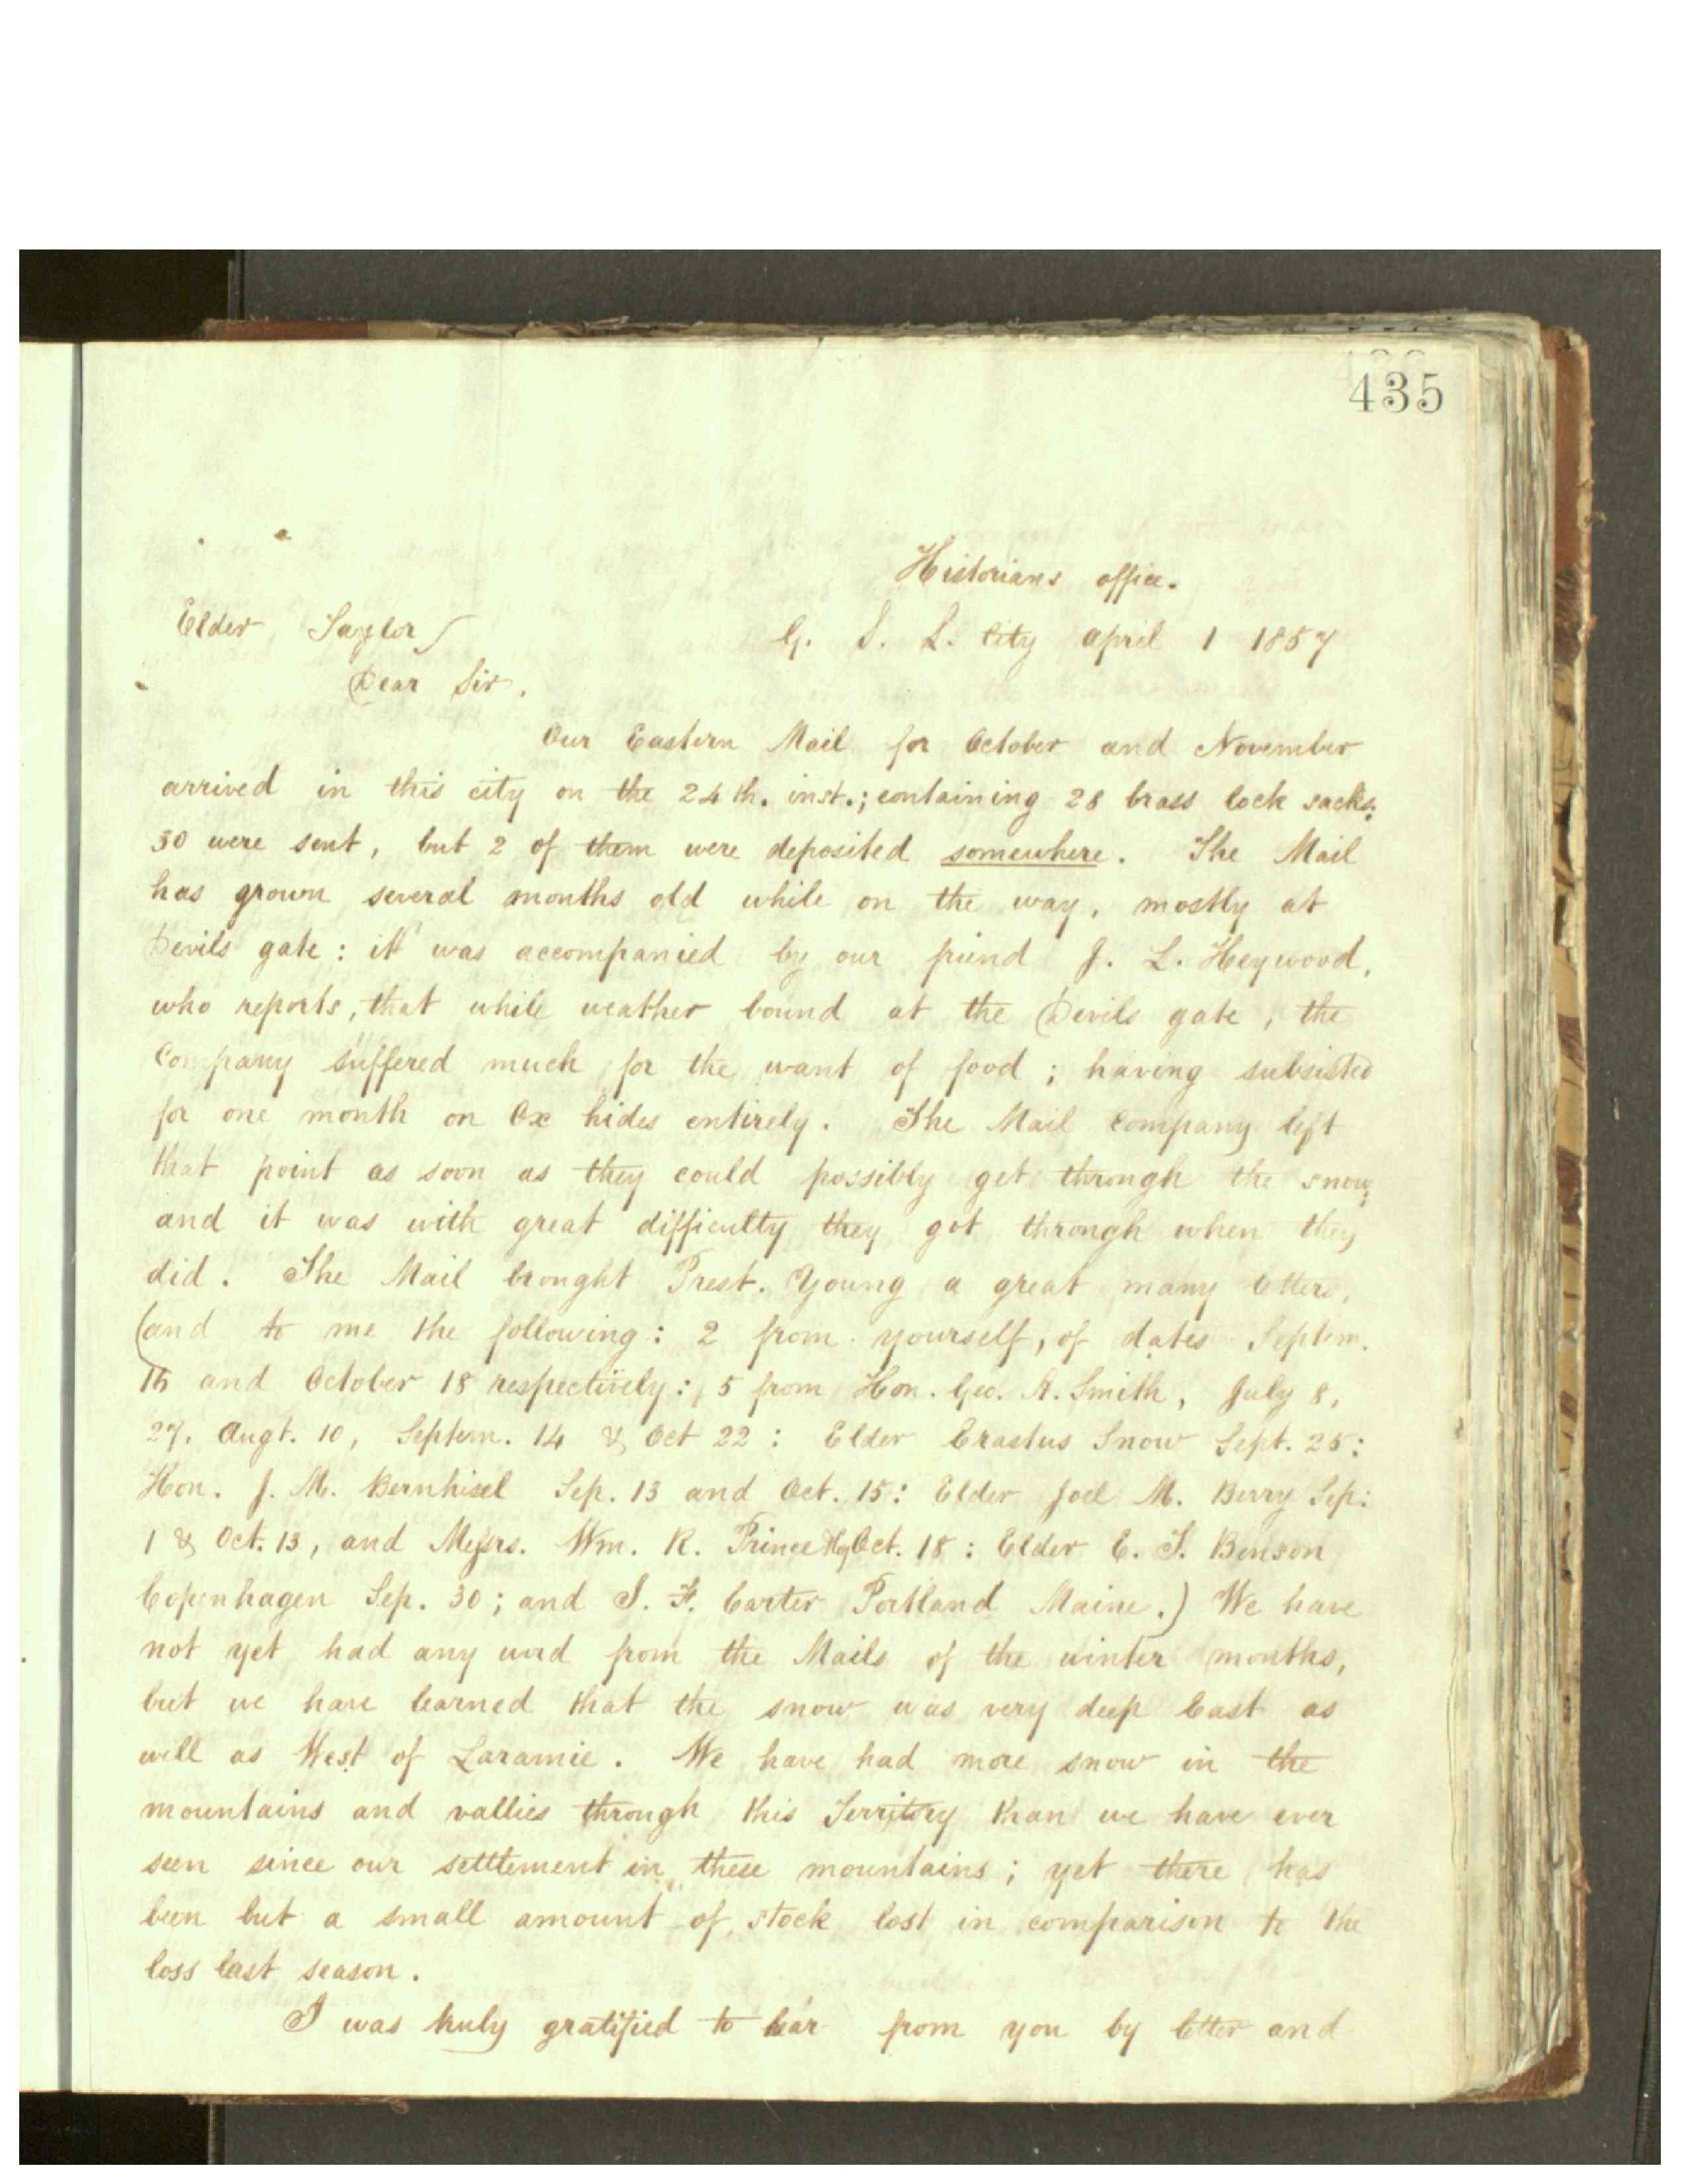 435
Historians office.
Elder Taylor G. S. L. City April 1 1857
Dear Sir,
Our Eastern Mail for October and November
arrived in this city on the 24th. inst.; containing 28 brass lock sacks;
30 were sent, but 2 of them were deposited somewhere. The Mail
has grown several months old while on the way, mostly at
Devils gate: it was accompanied by our friend J. L. Heywood,
who reports, that while weather bound at the Devils gate, the
Company suffered much for the want of food; having subsisted
for one month on Ox hides entirely. The Mail Company left
that point as soon as they could possibly get through the snow;
and it was with great difficulty they got through when they
did. The Mail brought Prest. Young a great many letters,
(and to me the following: 2 from yourself, of dates Septem.
and October 18 respectively: 5 from Hon. Geo. A. Smith, July 8,
27. Augt. 10, Septem. 14 & Oct 22: Elder Erastus Snow Sept. 25:
Hon. J. M. Bernhisel Sep. 13 and Oct. 15: Elder Joel M. Berry Sep:
1 & Oct. 13, and Messrs. Wm. R. Prince Oct. 18: Elder E. T. Benson
Copenhagen Sep. 30; and S. F. Carter Portland Maine.) We have
not yet had any word from the Mails of the winter months,
but we have learned that the snow was very deep East as
well as West of Laramie. We have had more snow in the
mountains and vallies through this Territory than we have ever
seen since our settlement in these mountains; yet there has
been but a small amount of stock lost in comparison to the
loss last season.
I was truly gratified to hear from you by letter and